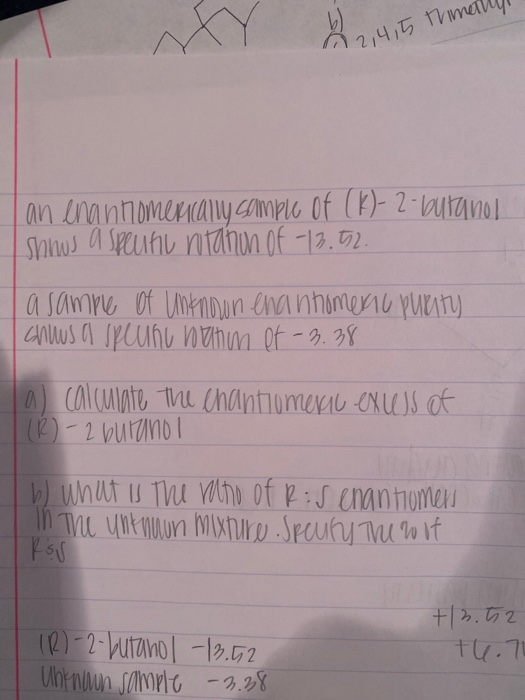 b)
2,4,5 trimethyl
an enantiomerically sample of (R)-2-butanol
shows a specific rotation of -13.52.
a sample of unknown enantiomeric purity
shows a specific rotation of -3.38
a) calculate the enantiomeric excess of
(R)-2 butanol
b) what is the ratio of R:S enantiomers
in the unknown mixture. Specify the % of
R:S
+13.52
(R)-2-butanol -13.52
+6.7
Unknown sample -3.38